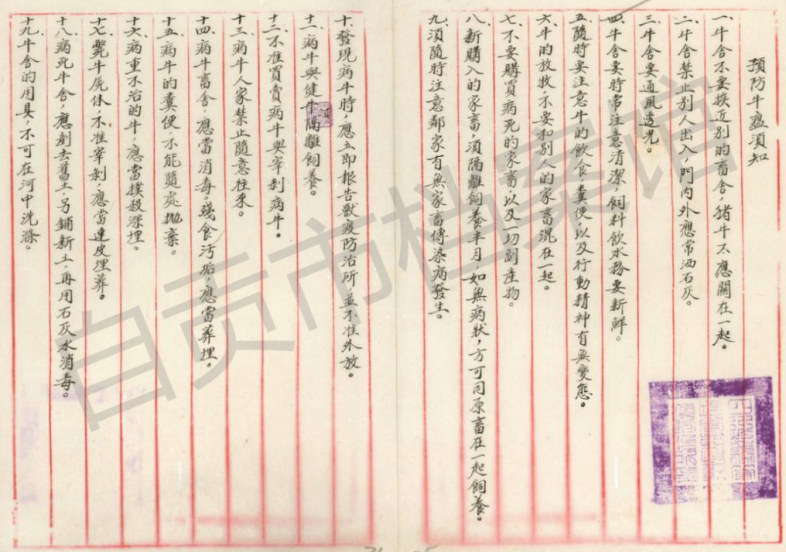 預防牛瘟須知
一、牛舍不要挨近别的畜舍，猪牛不應關在一起。
二、牛舍禁止别人出入，門内外應常洒石灰。
三、牛舍要通風透光。
四、牛舍要時常注意清潔，飼料飲水務要新鮮。
五、隨時要注意牛的飲食、糞便、以及行動精神有無變態。
六、牛的放牧，不要和别人的家畜混在一起。
七、不要購買病死的家畜，以及一切副產物。
八、新購入的家畜，須隔離飼養半月，如無病狀，方可同原畜在一起飼養。
九、須隨時注意鄰家有無家畜傳染病發生。
十、發現病牛時，應立即報告獸疫防治所，並不准外放。
十一、病牛與健牛隔離飼養。
十二、不准買賣病牛與宰剥病牛。
十三、病牛人家禁止隨意往來。
十四、病牛畜舍，應當消毒，殘食污垢，應當葬埋。
十五、病牛的糞便，不能隨處拋棄。
十六、病重不治的牛，應當撲殺深埋。
十七、斃牛屍体，不准宰剥，應當連皮埋葬。
十八、病死牛舍，應剷去舊土，另鋪新土，再用石灰水消毒。
十九、牛舍的用具，不可在河中洗滌。
自贡市档案馆